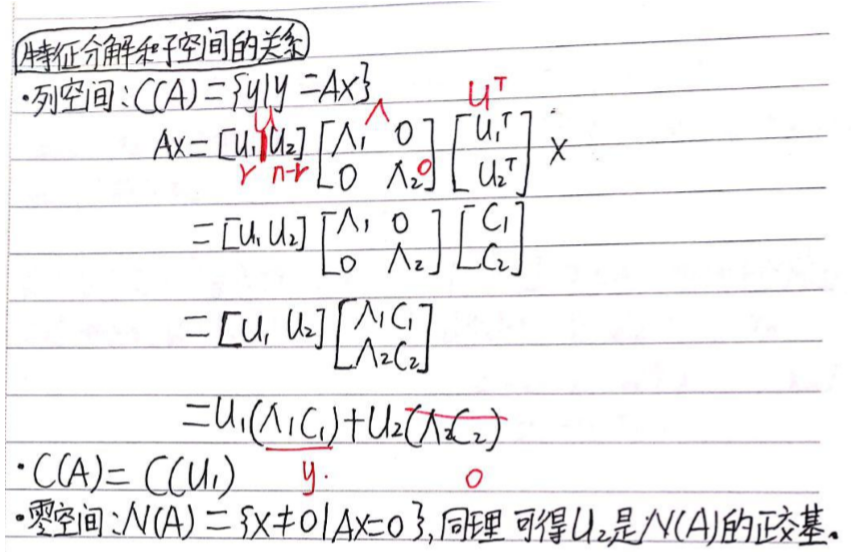 特征分解和子空间的关系
·列空间:C(A)={y|y=Ax}
U Λ Uᵀ
Ax=[U₁|U₂] [Λ₁ 0 0 Λ₂] [U₁ᵀ U₂ᵀ] x
r n-r 0
=[U₁ U₂] [Λ₁ 0 0 Λ₂] [C₁ C₂]
=[U₁ U₂] [Λ₁C₁ Λ₂C₂]
=U₁(Λ₁C₁)+U₂(Λ₂C₂)
·C(A)= C(U₁) y. 0
·零空间:N(A)={x≠0|Ax=0},同理可得U₂是N(A)的正交基。